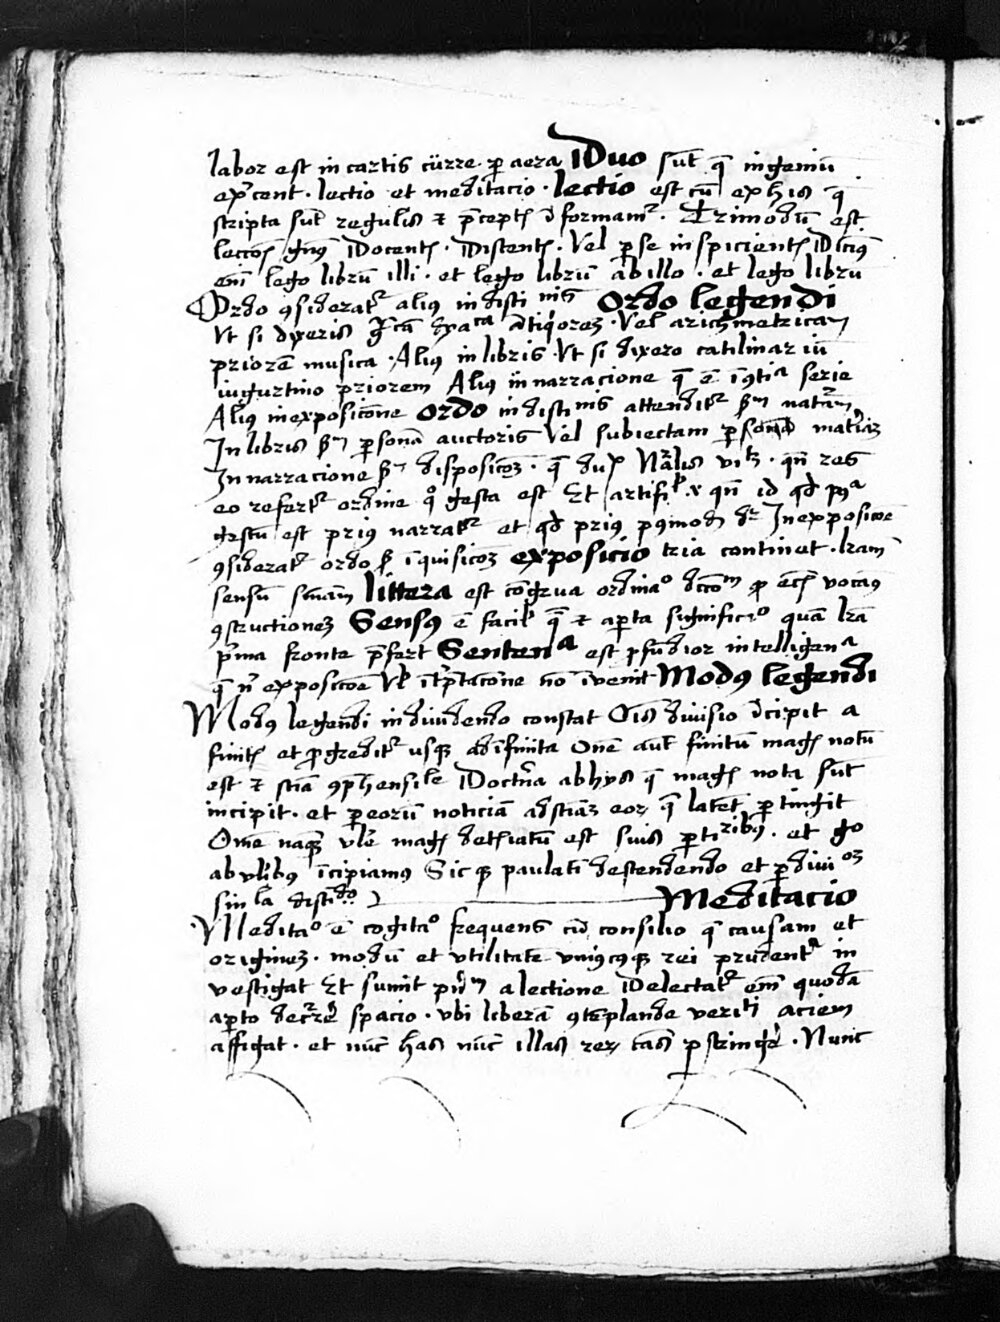 labor est in cartis cürre per aera Duo sūt q̄ ingeniū
exercent · lectio et meditacio · lectio est cū ex hiis q̄
scripta sūt regulis ⁊ p̄ceptis īformamur · Trimodū est
leccōis genus Docentis · Discentis · Vel per se inspicientis Dicimus
enī lego librū illi · et lego librū ab illo · et lego librū
Ordo ꝯsideratur alius in disciplinis Ordo legendi
Vt si dixeris antiquiorem · Vel arismetricam
priorē musica · Alius in libris · Vt si dixero catilinariū
iugurtino priorem Alius in narracione q̄ ē serie
Alius in exposicōne Ordo in disciplinis attenditur naturam
In libris personā auctoris Vel subiectam materiam
In narracione disposicōem · q̄ duplex Naturalis qn̄ res
eo refertur ordine quo gesta est Et artificialis qn̄ id qd postea
gestū est prius narratur et qd prius postmodum In exposicōe
ꝯsideratur ordo inquisicōem exposicio tria continet · lr̄am
sensū littera est congrua ordinacio vocamus
ꝯstructionem Sensus ē facilis q̄ ⁊ aperta significacio quā lr̄a
prima fronte p̄fert Sentencia est profundior intelligencia
q̄ exposicōe Vel interpretacōne nō īvenitur Modus legendi
Modus legendi in dividendo constat Oīs divisio incipit a
finitis et progreditur usque ad īfinita Omē aut finitū magis notū
est ⁊ sciā ꝯprehensile Doctrina ab hiis q̄ magis nota sūt
incipit · et per eorū noticiā ad sciam eorum q̄ latent pertingit
Omē naque magis determinatū est suis partibus · et
ab incipiamus Sicque paulatī descendendo et per
Meditacio
Meditacio ē cogitacio frequens cū consilio q̄ causam et
originem · modū et vtilitatē vniuscuiusque rei prudenter in
vestigat Et sumit a lectione Delectatur enī quodā
aperto decurrere spacio · vbi liberā ꝯtemplande veritati aciem
affigat · et nūc has nūc illas rerum causas perstringere · Nunc